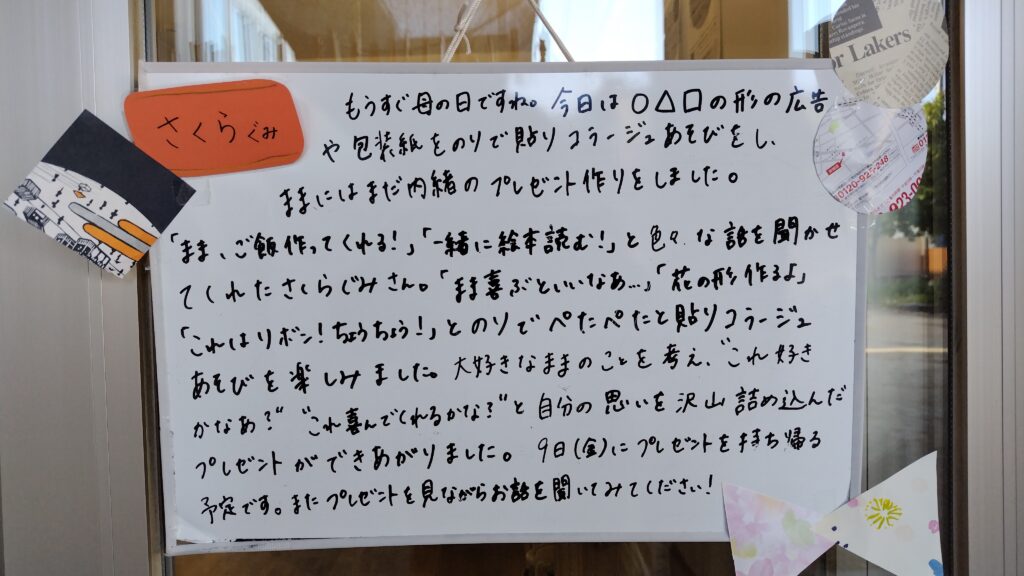 さくらぐみ
もうすぐ母の日ですね。今日は○△□の形の広告
や包装紙をのりで貼りコラージュあそびをし、
ままにはまだ内緒のプレゼント作りをしました。
「まま、ご飯作ってくれる!」「一緒に絵本読む!」と色々な話を聞かせ
てくれたさくらぐみさん。「まま喜ぶといいなぁ…」「花の形作るよ」
「これはリボン!ちょうちょう!」とのりでぺたぺたと貼りコラージュ
あそびを楽しみました。大好きなままのことを考え、"これ好き
かなぁ?" "これ喜んでくれるかな?"と自分の思いを沢山詰め込んだ
プレゼントができあがりました。9日(金)にプレゼントを持ち帰る
予定です。またプレゼントを見ながらお話を聞いてみてください!
or Lakers
0120-925-248